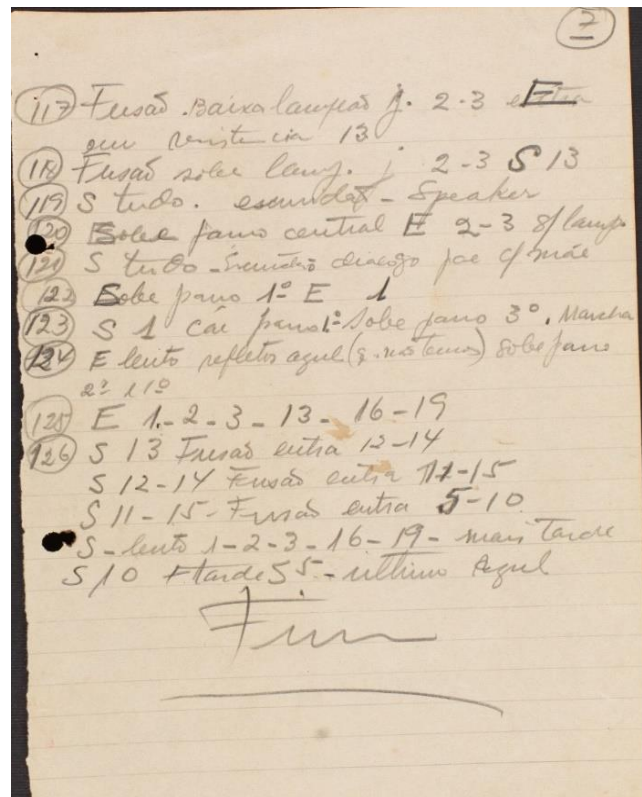 7
117 Fusão. Baixa lampeão j. 2-3 entra
em resistencia 13
118 Fusão sobe lamp. j 2-3 S 13
119 S tudo. - Speaker
120 Sobe pano central E 2-3 s/ lamp
121 S tudo - dialogo pae c/ mãe
122 Sobe pano 1º E 1
123 S 1 Cái pano 1º Sobe pano 3º. Marcha
124 E lento refletor azul (q. nós temos) Sobe pano
2º 1 1º
125 E 1-2-3-13-16-19
126 S 13 Fusão entra 12-14
S 12-14 Fusão entra 11-15
S 11-15-Fusão entra 5-10
S-lento 1-2-3-16-19- mais tarde
S 10 + tarde S 5-ultimo Azul
Fim